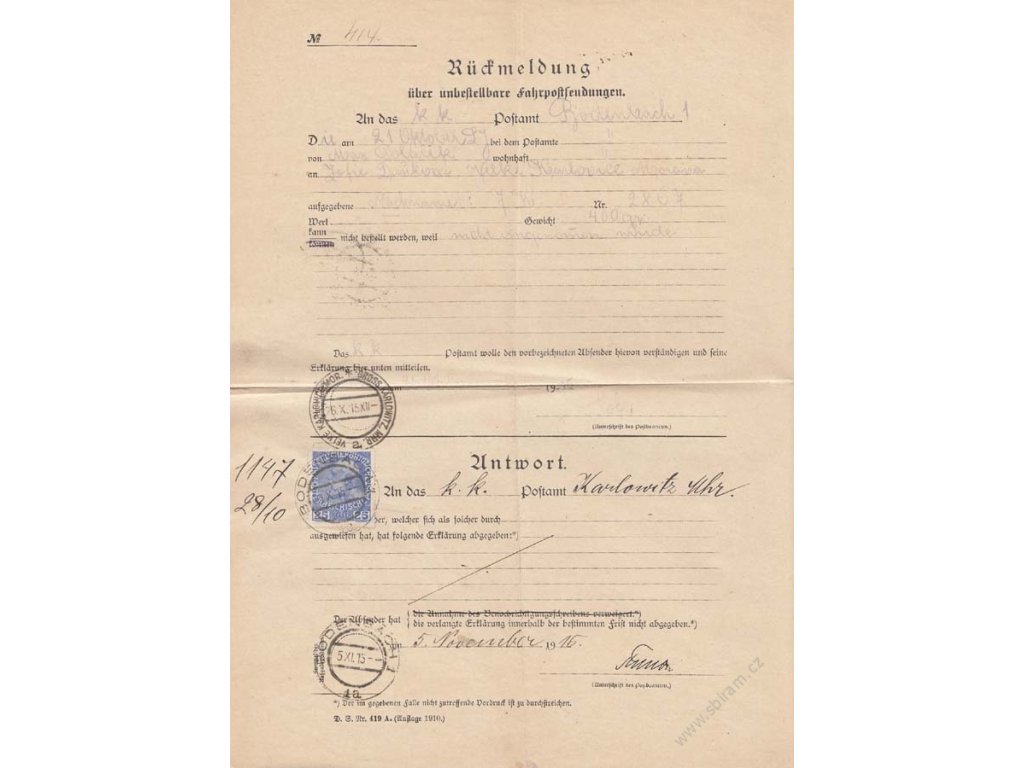 № 414.
Rückmeldung
über unbestellbare Fahrpostsendungen.
An das k k. Postamt Bodenbach 1
Die am 21 Oktober bei dem Postamte "
von wohnhaft
an Karlovice Morava
aufgegebene Nachnahme 7 K Nr. 2867
Wert Gewicht 400 gr
kann
können nicht bestellt werden, weil nicht angenommen wurde
Das k k Postamt wolle den vorbezeichneten Absender hievon verständigen und seine
Erklärung hier unten mitteilen.
am 19 15
(Unterschrift des Postbeamten.)
GROSS KARLOWITZ MÄR. * VELKÉ KARLOVICE MOR. *
6.X.15 XII
a
Antwort.
1147
28/10
BODENBACH 1
25 25
An das k. k. Postamt Karlowitz Mhr.
er, welcher sich als solcher durch
ausgewiesen hat, hat folgende Erklärung abgegeben:*)
Der Absender hat { die Annahme des Benachrichtigungsschreibens verweigert.*)
die verlangte Erklärung innerhalb der bestimmten Frist nicht abgegeben.*)
am 5. November 1915.
BODENBACH 1
5.XI.15
1a
(Unterschrift des Postbeamten.)
*) Der im gegebenen Falle nicht zutreffende Vordruck ist zu durchstreichen.
D. S. Nr. 419 A. (Auflage 1910.)
www.sbiram.cz